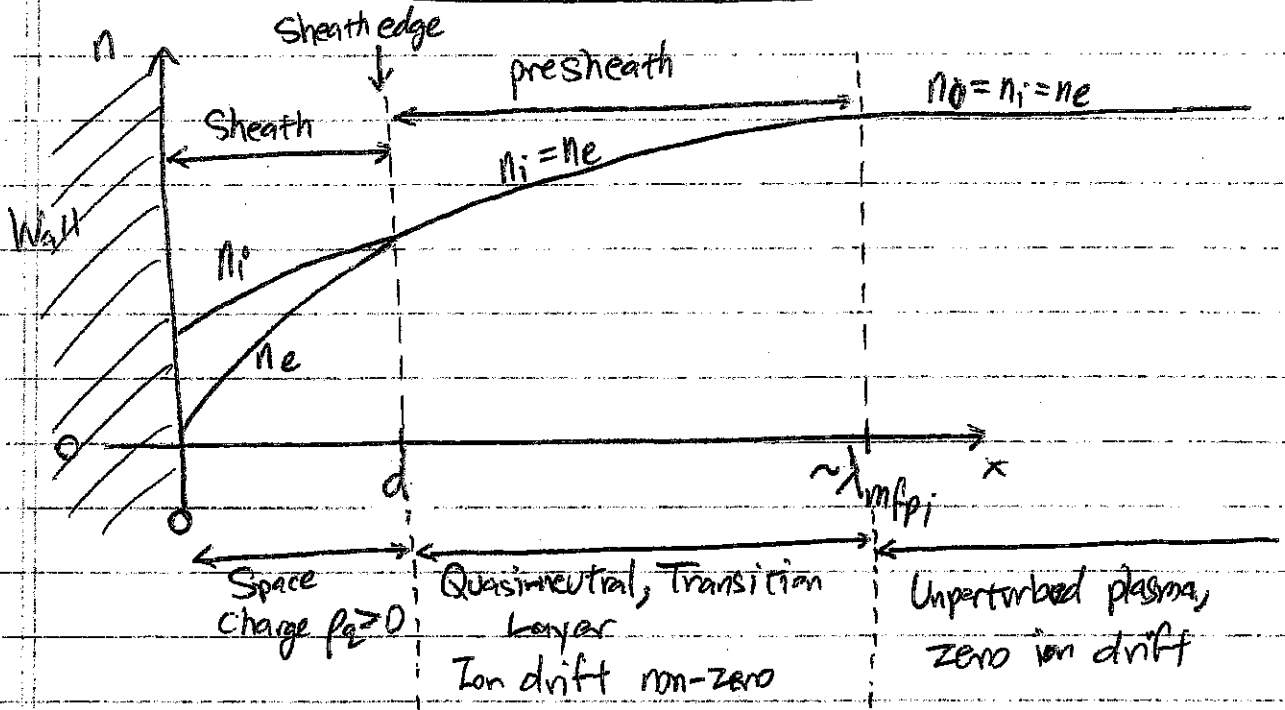 Sheath edge
n
presheath
n₀ = nᵢ = nₑ
Sheath
nᵢ = nₑ
Wall
nᵢ
nₑ
O
d
~λmfpᵢ
x
O
Space
Charge ρq ≥ 0
Quasineutral, Transition
Layer
Ion drift non-zero
Unperturbed plasma,
zero ion drift